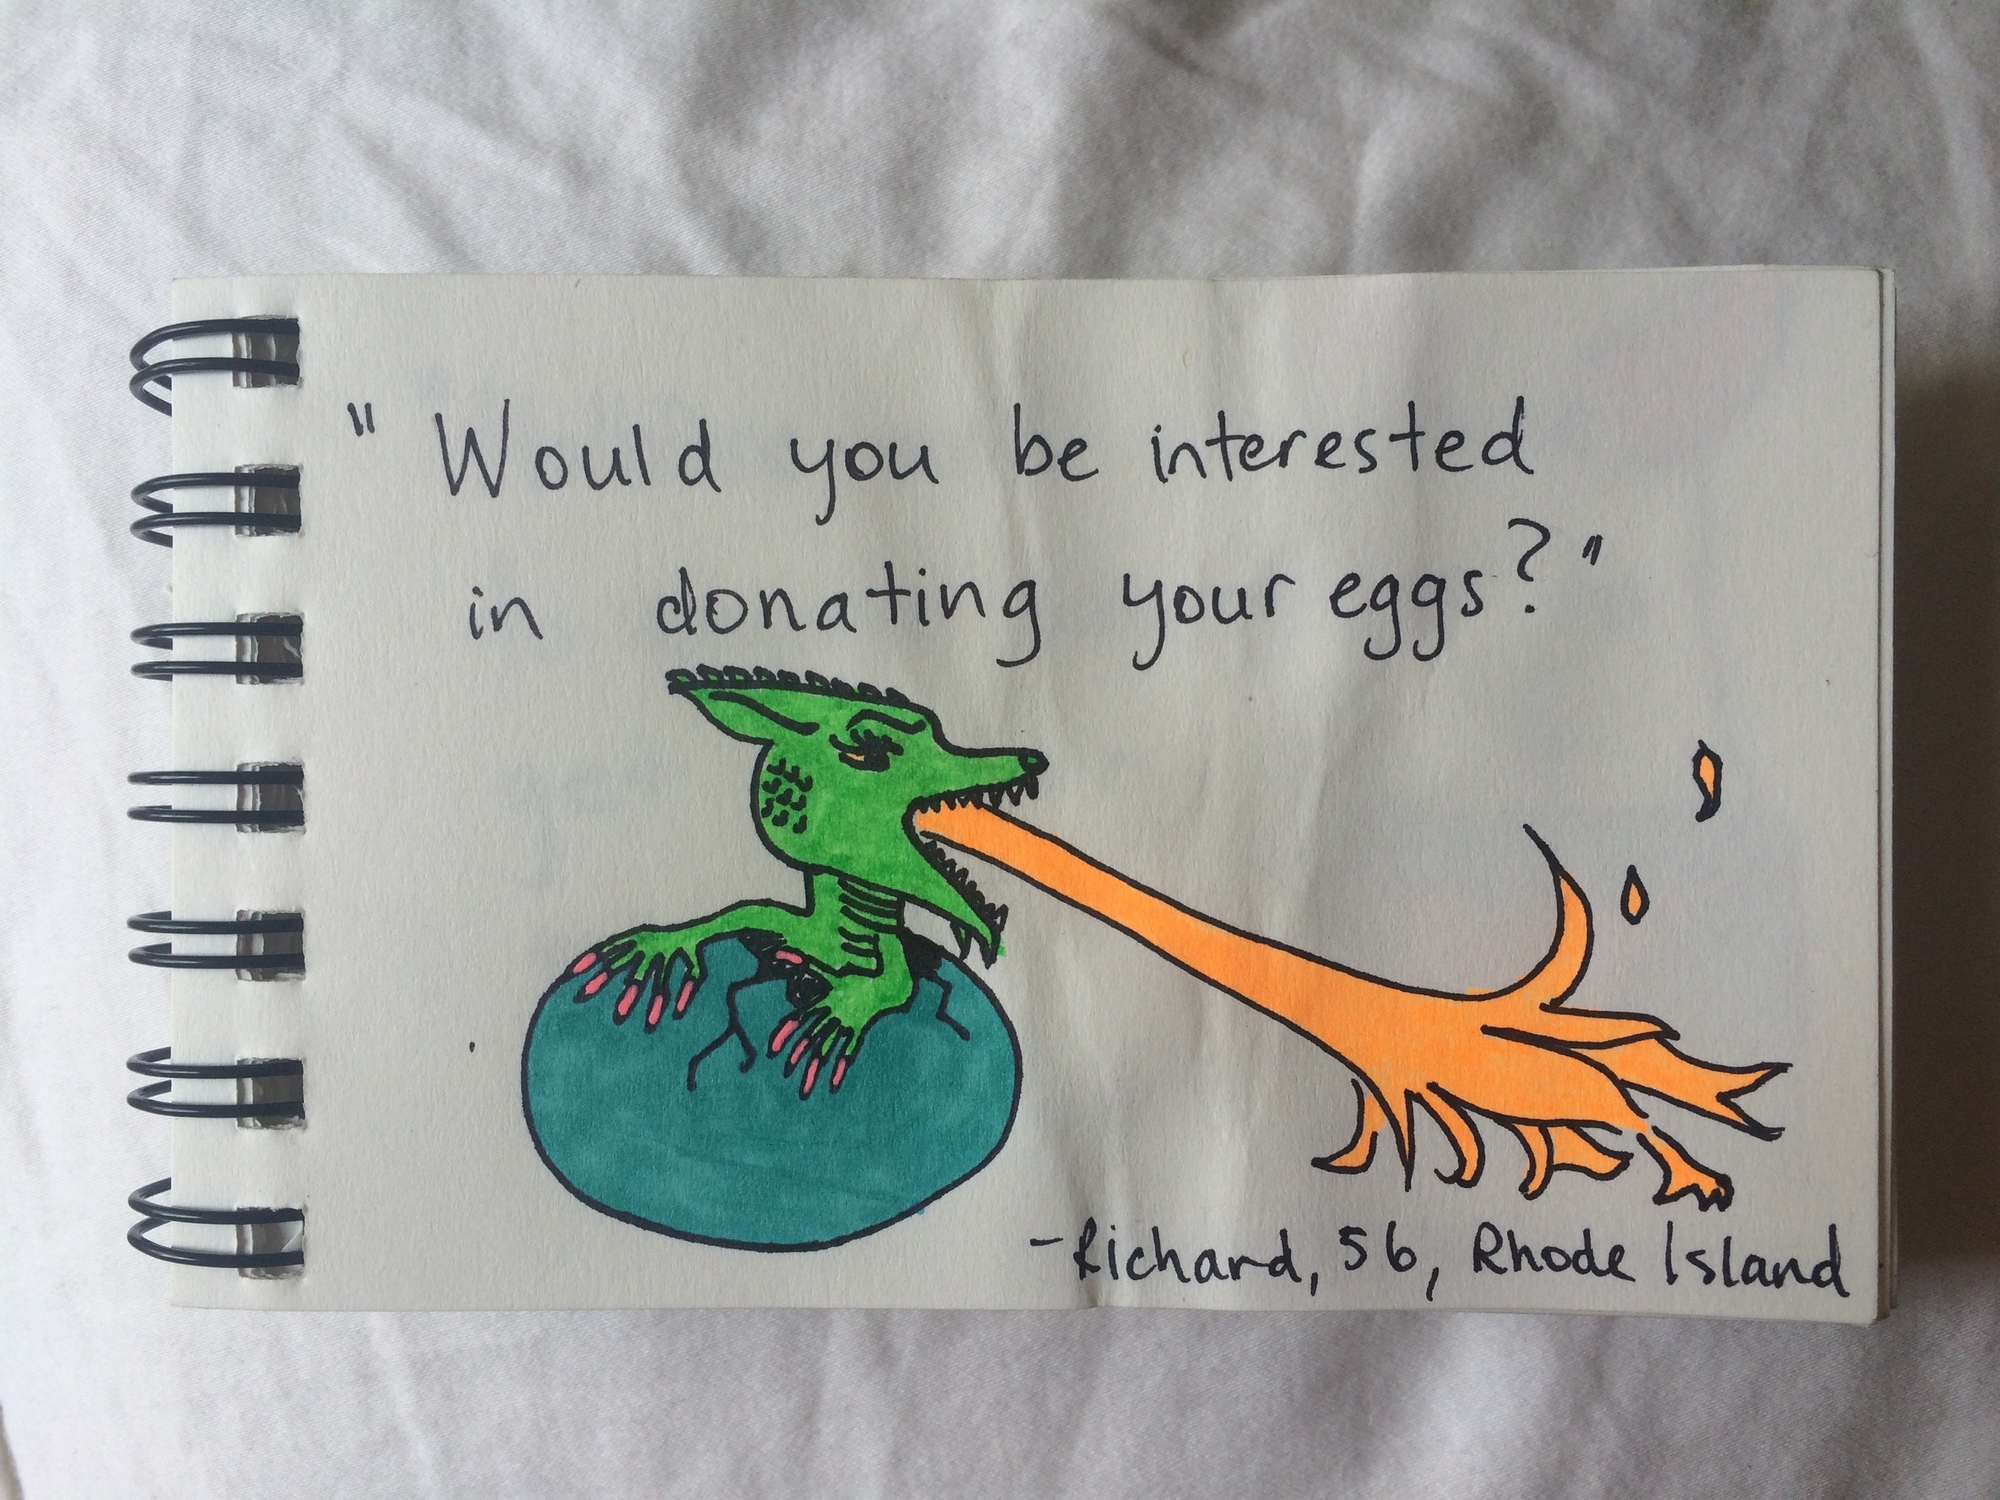 " Would you be interested
in donating your eggs?"
-Richard, 56, Rhode Island